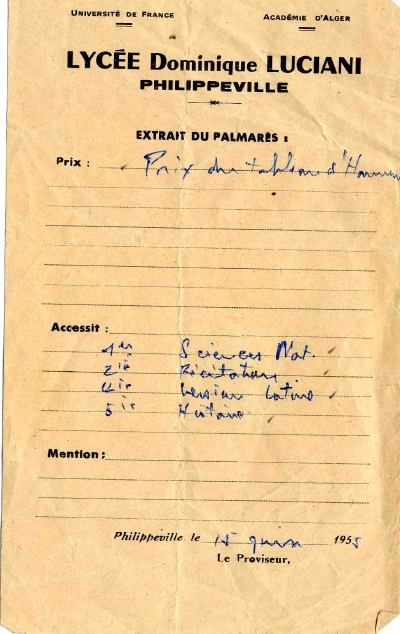 UNIVERSITÉ DE FRANCE ACADÉMIE D'ALGER
LYCÉE Dominique LUCIANI
PHILIPPEVILLE
EXTRAIT DU PALMARÈS :
Prix : Prix du tableau d'Honneur
Accessit :
1er Sciences Nat.
2ie Récitation
4ie Version Latine
5ie Histoire
Mention :
Philippeville le 15 juin 1955
Le Proviseur,